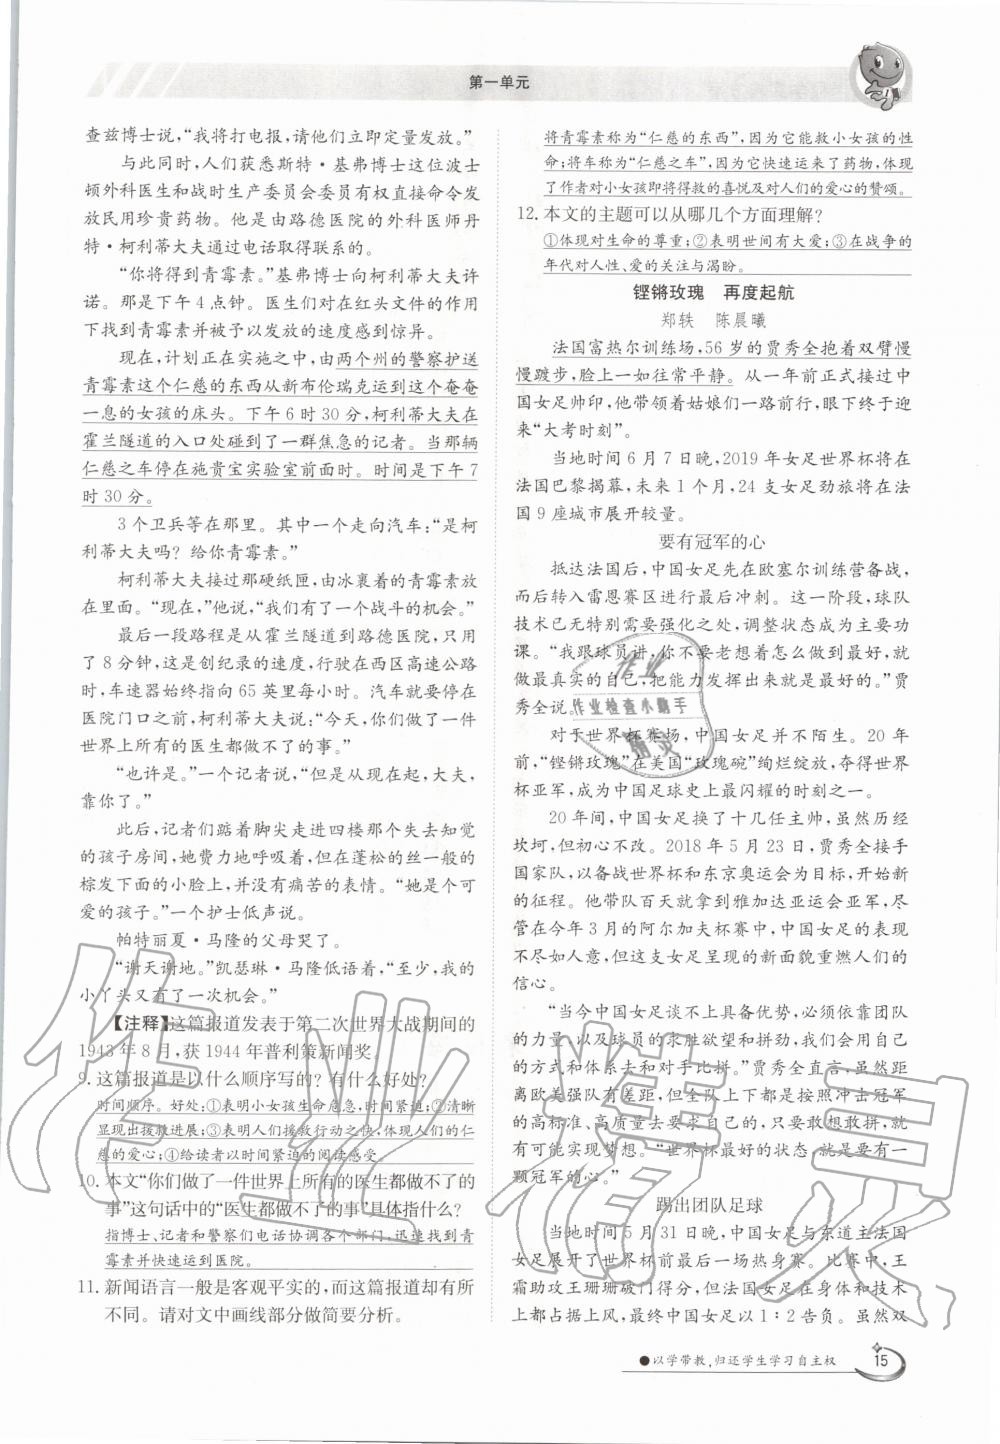 第一单元
查兹博士说,“我将打电报,请他们立即定量发放。”
与此同时,人们获悉斯特·基弗博士这位波士
顿外科医生和战时生产委员会委员有权直接命令发
放民用珍贵药物。他是由路德医院的外科医师丹
特·柯利蒂大夫通过电话取得联系的。
“你将得到青霉素。”基弗博士向柯利蒂大夫许
诺。那是下午4点钟。医生们对在红头文件的作用
下找到青霉素并被予以发放的速度感到惊异。
现在,计划正在实施之中,由两个州的警察护送
青霉素这个仁慈的东西从新布伦瑞克运到这个奄奄
一息的女孩的床头。下午6时30分,柯利蒂大夫在
霍兰隧道的入口处碰到了一群焦急的记者。当那辆
仁慈之车停在施贵宝实验室前面时。时间是下午7
时30分。
3个卫兵等在那里。其中一个走向汽车:“是柯
利蒂大夫吗?给你青霉素。”
柯利蒂大夫接过那硬纸匣,由冰裹着的青霉素放
在里面。“现在,”他说,“我们有了一个战斗的机会。”
最后一段路程是从霍兰隧道到路德医院,只用
了8分钟,这是创纪录的速度,行驶在西区高速公路
时,车速器始终指向65英里每小时。汽车就要停在
医院门口之前,柯利蒂大夫说:“今天,你们做了一件
世界上所有的医生都做不了的事。”
“也许是。”一个记者说,“但是从现在起,大夫,
靠你了。”
此后,记者们踮着脚尖走进四楼那个失去知觉
的孩子房间,她费力地呼吸着,但在蓬松的丝一般的
棕发下面的小脸上,并没有痛苦的表情。“她是个可
爱的孩子。”一个护士低声说。
帕特丽夏·马隆的父母哭了。
“谢天谢地。”凯瑟琳·马隆低语着,“至少,我的
小丫头又有了一次机会。”
【注释】这篇报道发表于第二次世界大战期间的
1943年8月,获1944年普利策新闻奖。
9. 这篇报道是以什么顺序写的?有什么好处?
时间顺序。好处:①表明小女孩生命危急,时间紧迫;②清晰
显现出拔救进展;③表明人们援救行动之快,体现人们的仁
慈的爱心;④给读者以时间紧迫的阅读感受。
10. 本文“你们做了一件世界上所有的医生都做不了的
事”这句话中的“医生都做不了的事”具体指什么?
指博士、记者和警察们电话协调各个部门,迅速找到青
霉素并快速运到医院。
11. 新闻语言一般是客观平实的,而这篇报道却有所
不同。请对文中画线部分做简要分析。
将青霉素称为“仁慈的东西”,因为它能救小女孩的性
命;将车称为“仁慈之车”,因为它快速运来了药物,体现
了作者对小女孩即将得救的喜悦及对人们的爱心的赞颂。
12. 本文的主题可以从哪几个方面理解?
①体现对生命的尊重;②表明世间有大爱;③在战争的
年代对人性、爱的关注与渴盼。
铿锵玫瑰 再度起航
郑轶 陈晨曦
法国富热尔训练场,56岁的贾秀全抱着双臂慢
慢踱步,脸上一如往常平静。从一年前正式接过中
国女足帅印,他带领着姑娘们一路前行,眼下终于迎
来“大考时刻”。
当地时间6月7日晚,2019年女足世界杯将在
法国巴黎揭幕,未来1个月,24支女足劲旅将在法
国9座城市展开较量。
要有冠军的心
抵达法国后,中国女足先在欧塞尔训练营备战,
而后转入雷恩赛区进行最后冲刺。这一阶段,球队
技术已无特别需要强化之处,调整状态成为主要功
课。“我跟球员讲,你不要老想着怎么做到最好,就
做最真实的自己,把能力发挥出来就是最好的。”贾
秀全说。
对于世界杯赛场,中国女足并不陌生。20年
前,“铿锵玫瑰”在美国“玫瑰碗”绚烂绽放,夺得世界
杯亚军,成为中国足球史上最闪耀的时刻之一。
20年间,中国女足换了十几任主帅,虽然历经
坎坷,但初心不改。2018年5月23日,贾秀全接手
国家队,以备战世界杯和东京奥运会为目标,开始新
的征程。他带队百天就拿到雅加达亚运会亚军,尽
管在今年3月的阿尔加夫杯赛中,中国女足的表现
不尽如人意,但这支女足呈现的新面貌重燃人们的
信心。
“当今中国女足谈不上具备优势,必须依靠团队
的力量,以及球员的求胜欲望和拼劲,我们会用自己
的方式和体系去和对手比拼。”贾秀全直言,虽然距
离欧美强队有差距,但全队上下都是按照冲击冠军
的高标准、高质量去要求自己的,只要敢想敢拼,就
有可能实现梦想。“世界杯最好的状态,就是要有一
颗冠军的心。”
踢出团队足球
当地时间5月31日晚,中国女足与东道主法国
女足展开了世界杯前最后一场热身赛。比赛中,王
霜助攻王珊珊破门得分,但法国女足在身体和技术
上都占据上风,最终中国女足以1∶2告负。虽然双
作业
作业检查小助手
精灵
作业精灵
●以学带教,归还学生学习自主权 15